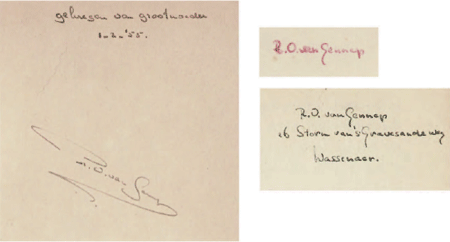 gekregen van grootmoeder
1.2.'55.
R.O. van Genn
R.O. van Gennep
R.O. van Gennep
26 Storm van 's Gravesandeweg
Wassenaar.